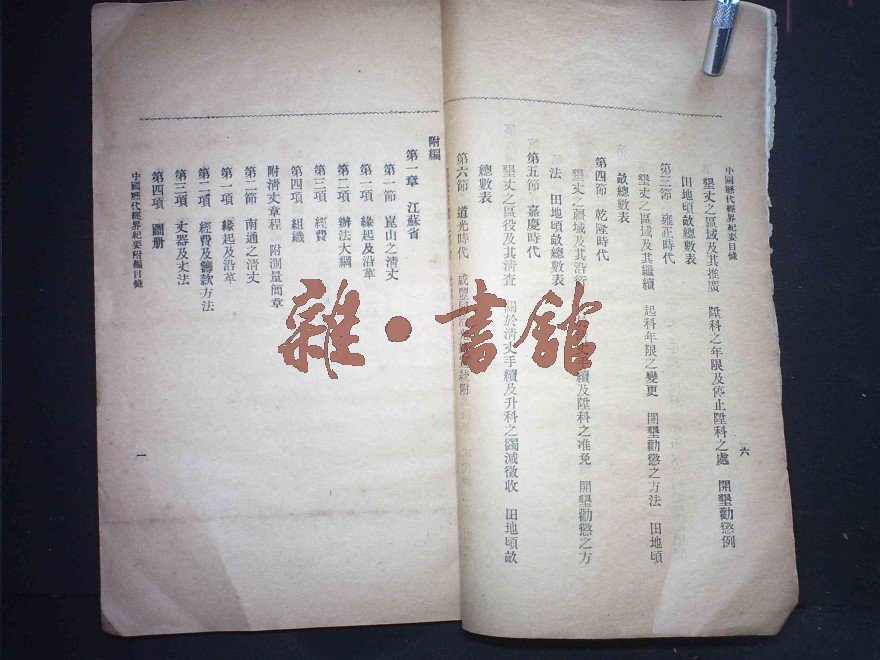 中國歷代經界紀要目錄
六
墾丈之區域及其推廣 陞科之年限及停止陞科之處 開墾勸懲例
田地頃畝總數表
第三節 雍正時代
墾丈之區域及其繼續 起科年限之變更 開墾勸懲之方法 田地頃
畝總數表
第四節 乾隆時代
墾丈之疆域及其沿 手續及陞科之准免 開墾勸懲之方
法 田地頃畝總數表
第五節 嘉慶時代
墾丈之區役及其清查 關於清丈手續及升科之蠲減徵收 田地頃畝
總數表
第六節 道光時代 咸豐 統附
附編
第一章 江蘇省
第一節 崑山之清丈
第一項 緣起及沿革
第二項 辦法大綱
第三項 經費
第四項 組織
附清丈章程 附測量簡章
第二節 南通之清丈
第一項 緣起及沿革
第二項 經費及籌款方法
第三項 丈器及丈法
第四項 圖册
中國歷代經界紀要附編目錄
一
雜·書館